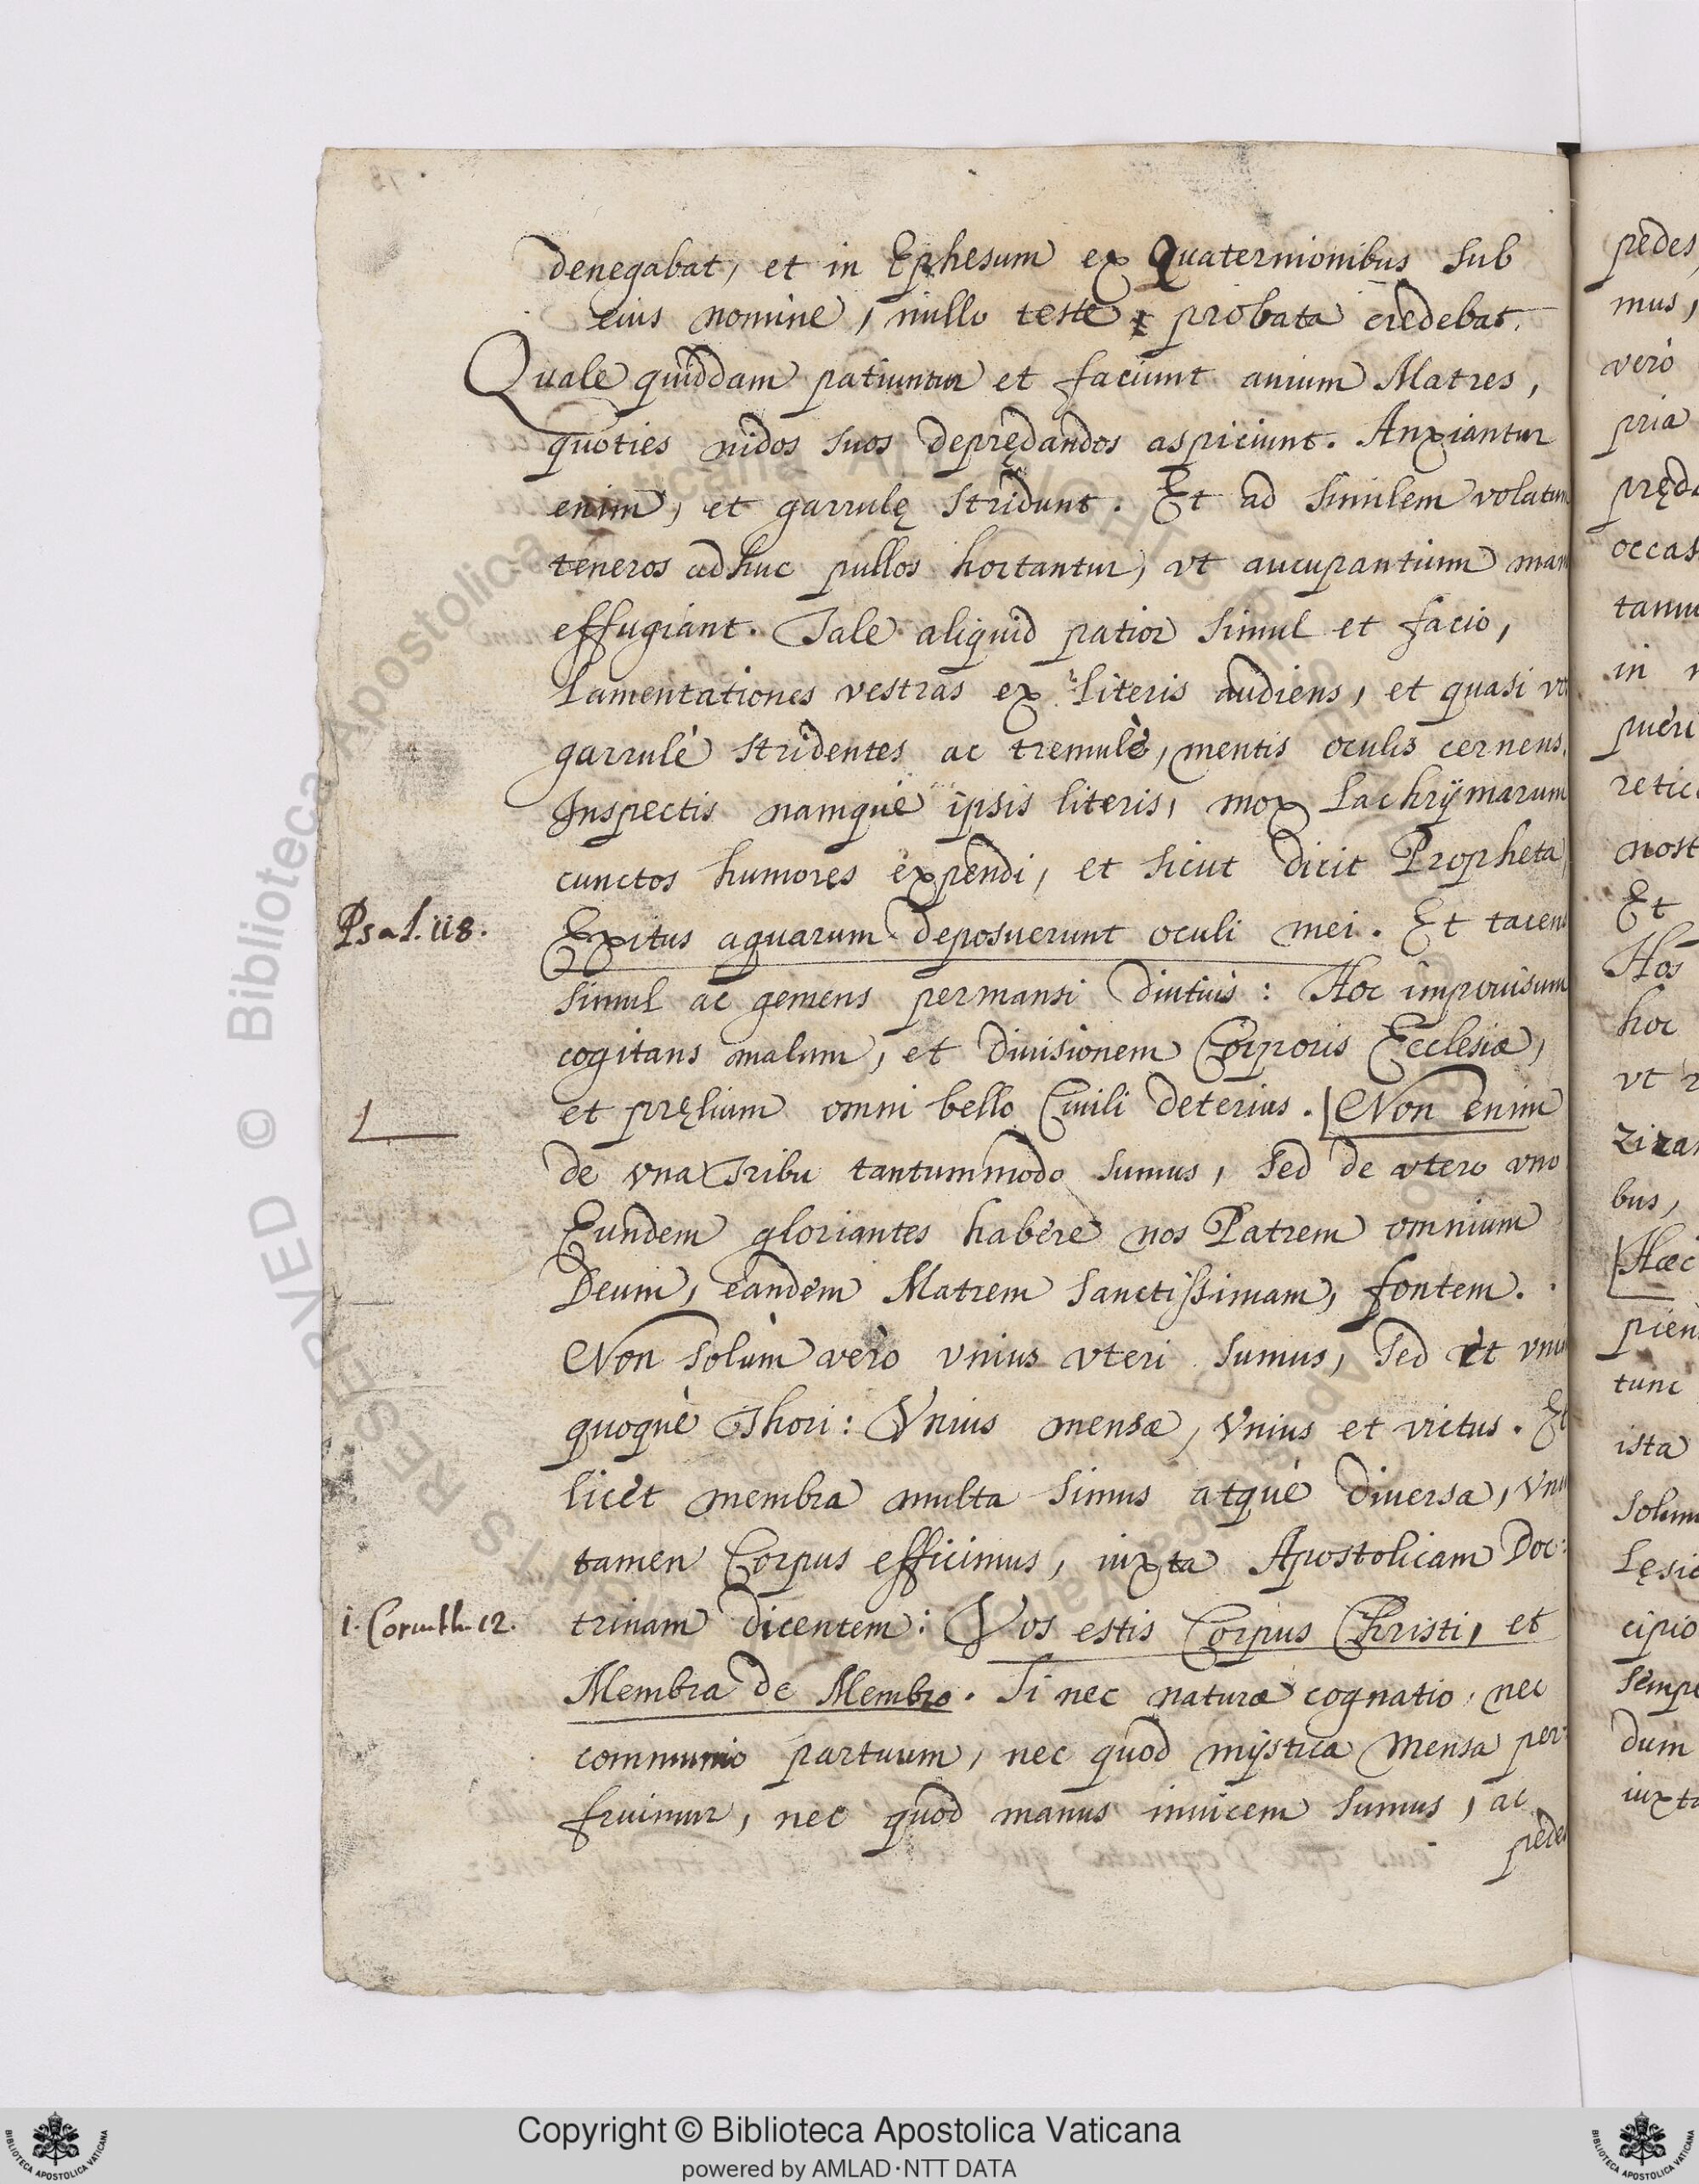 denegabat, et in Ephesum ex Quaternionibus sub
eius nomine, nullo teste probata credebat.
Quale quiddam patiuntur et faciunt auium Matres,
quoties nidos suos deprędandos aspiciunt. Anxiantur
enim, et garrulę stridunt. Et ad similem volatum
teneros adhuc pullos hortantur, vt aucupantium man
effugiant. Tale aliquid patior simul et facio,
Lamentationes vestras ex literis audiens, et quasi vo
garrulè stridentes ac tremulè, mentis oculis cernens.
Inspectis namque ipsis literis, mox Lachrÿmarum
cunctos humores expendi, et sicut dicit Propheta,
Psal. 118.
Exitus aquarum deposuerunt oculi mei. Et tacens
simul ac gemens permansi diutius: Hoc improuisum
cogitans malum, et diuisionem Corporis Ecclesiæ,
et pręlium omni bello Ciuili deterius. Non enim
de vna Tribu tantummodo sumus, sed de vtero vno
Eundem gloriantes habere nos Patrem omnium
Deum, eandem Matrem sanctissimam, fontem.
Non solùm verò vnius vteri sumus, sed et vni
quoque Thori: Vnius mensæ, Vnius et victus. Et
licèt membra multa simus atque diuersa, Vnu
tamen Corpus efficimus, iuxta Apostolicam Doc:
1. Corinth. 12.
trinam dicentem: Vos estis Corpus Christi, et
Membra de Membro. Si nec naturæ cognatio, nec
communio partuum, nec quod mÿstica Mensa per:
fruimur, nec quod manus inuicem sumus, ac
pedes
pedes,
mus,
verò
pria
pręda
occas
tamu
in
pueri
retic
nost
Et
Hos
hoc
vt
ziza
bus,
Hæc
pien
tunc
ista
solum
Lęsio
cipio
semper
dum
iuxta
© Biblioteca Apostolica Vaticana
Copyright © Biblioteca Apostolica Vaticana
powered by AMLAD·NTT DATA
BIBLIOTECA APOSTOLICA VATICANA
BIBLIOTECA APOSTOLICA VATICANA